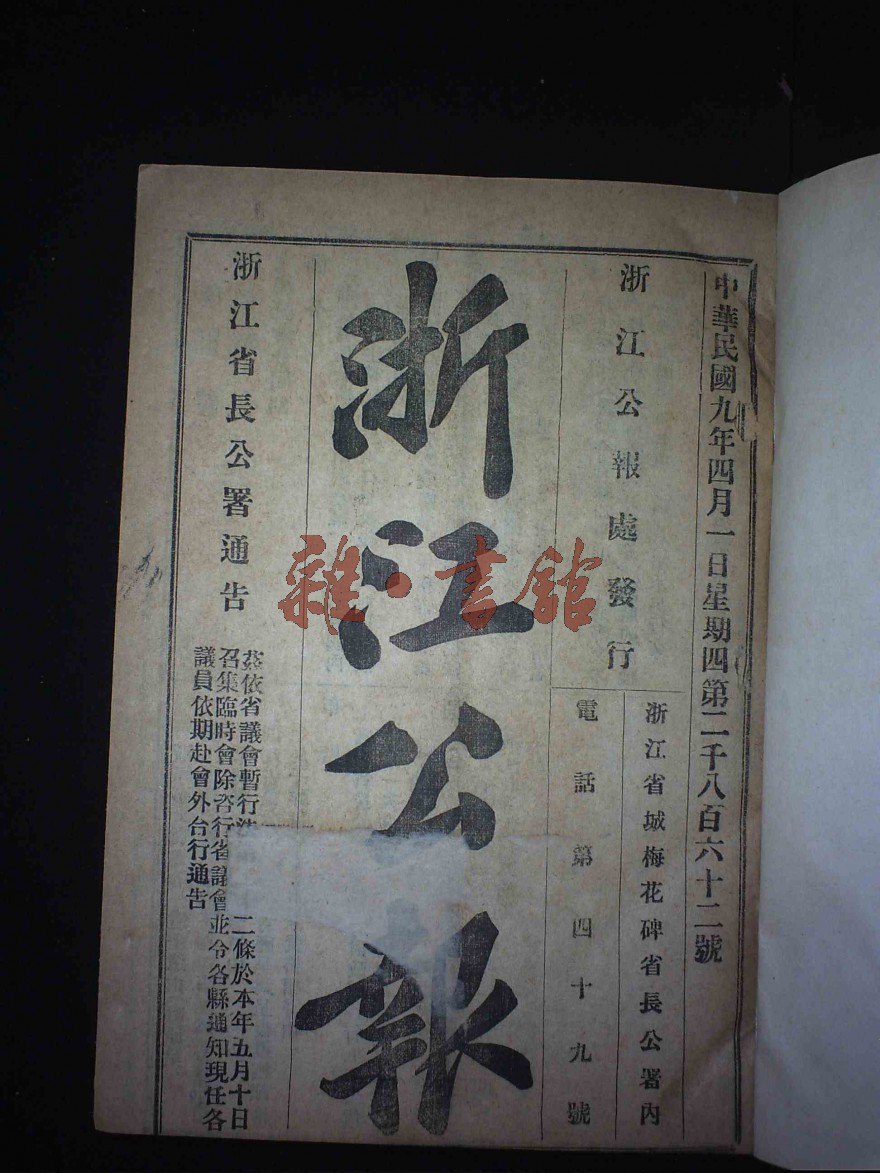 中華民國九年四月一日星期四第二千八百六十二號
浙江公報處發行
浙江省城梅花碑省長公署內
電話第四十九號
浙江公報
浙江省長公署通告
茲依省議會暫行法 二條於本年五月十日
召集臨時會除咨行省議會並令各縣通知現任各
議員依期赴會外合行通告
雜·書館